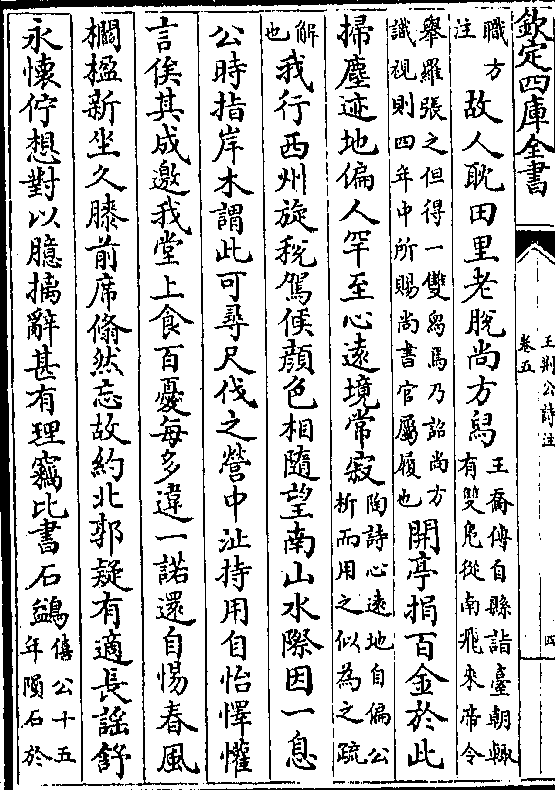 欽定四庫全書
王荆公詩注
卷五
四
職方
注
故人耽田里老脫尚方舄
王喬傳自縣詣臺朝輙
有雙凫從南飛來帝令
舉羅張之但得一雙舄焉乃詔尚方
識視則四年中所賜尚書官屬履也
開亭捐百金於此
掃塵迹地偏人罕至心遠境常寂
陶詩心遠地自偏公
析而用之似為之疏
解
也
我行西州旋稅駕候顔色相隨望南山水際因一息
公時指岸木謂此可尋尺伐之營中沚持用自怡懌懽
言俟其成邀我堂上食百憂每多違一諾還自惕春風
欄楹新坐久膝前席翛然忘故約北郭疑有適長謡舒
永懷佇想對以臆摛辭甚有理竊比書石鷁
僖公十五
年隕石於